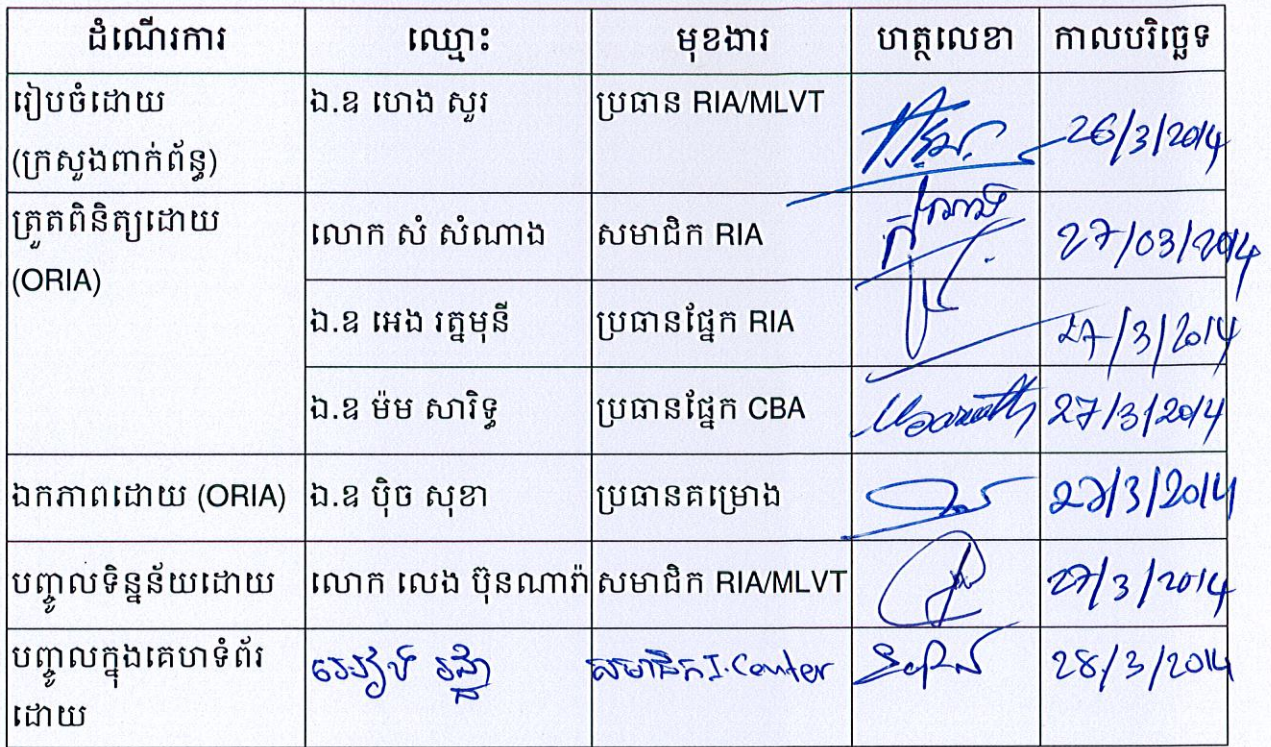 ដំណើរការ ឈ្មោះ មុខងារ ហត្ថលេខា កាលបរិច្ឆេទ
រៀបចំដោយ ឯ.ឧ ហេង សួរ ប្រធាន RIA/MLVT 26/3/2014
(ក្រសួងពាក់ព័ន្ធ)
ត្រួតពិនិត្យដោយ លោក សំ សំណាង សមាជិក RIA 27/03/2014
(ORIA)
ឯ.ឧ អេង រត្នមុនី ប្រធានផ្នែក RIA 27/3/2014
ឯ.ឧ ម៉ម សារិទ្ធ ប្រធានផ្នែក CBA 27/3/2014
ឯកភាពដោយ (ORIA) ឯ.ឧ ប៉ិច សុខា ប្រធានគម្រោង 27/3/2014
បញ្ចូលទិន្នន័យដោយ លោក លេង ប៊ុនណារ៉ា សមាជិក RIA/MLVT 27/3/2014
បញ្ចូលក្នុងគេហទំព័រ សមាជិក I.Center 28/3/2014
ដោយ